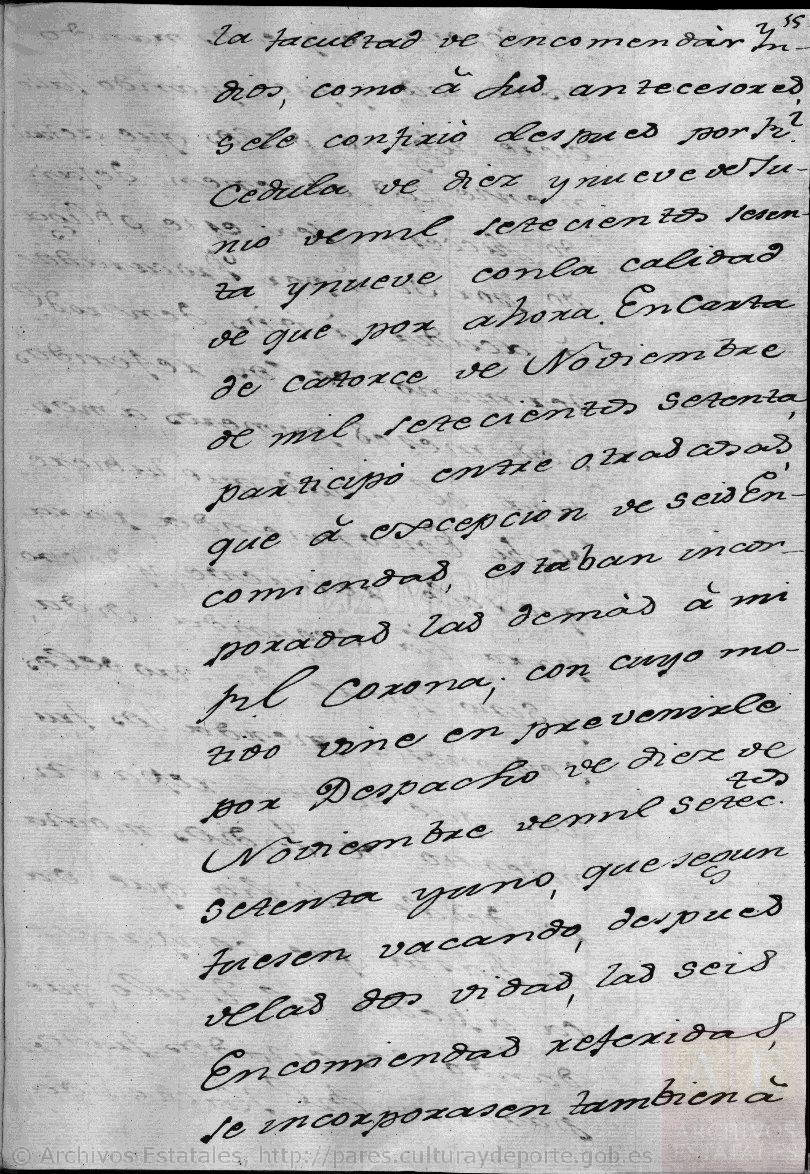 55
la facultad de encomendàr Yn-
dios, como â sus antecesores,
se le confirió despues por Rl.
Cedula de diez y nueve de Ju-
nio de mil setecientos sesen-
ta y nueve con la calidad
de que por ahora. En Carta
de catorce de Nôviembre
de mil setecientos setenta,
participó entre otras cosas,
que â excepcion de seis En-
comiendas, estaban incor-
poradas las demàs â mi
Rl Corona; con cuyo mo-
tivo vine en prevenirle
por Despacho de diez de
Nôviembre de mil setec.tos
setenta y uno, que segun
fuesen vacando, despues
de las dos vidas, las seis
Encomiendas referidas,
se incorporasen tambien â
© Archivos Estatales, http://pares.culturaydeporte.gob.es